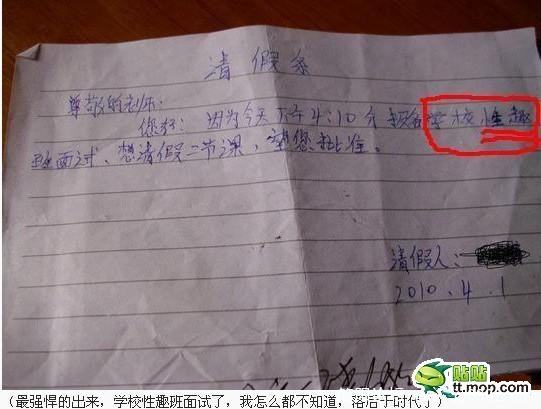 请假条
尊敬的老师:
您好: 因为今天下午4:10分 报名学校性趣
班面试、想请假二节课,望您批准。
请假人:
2010.4.1
贴贴
tt.mop.com
(最强悍的出来,学校性趣班面试了,我怎么都不知道,落活于时代了)